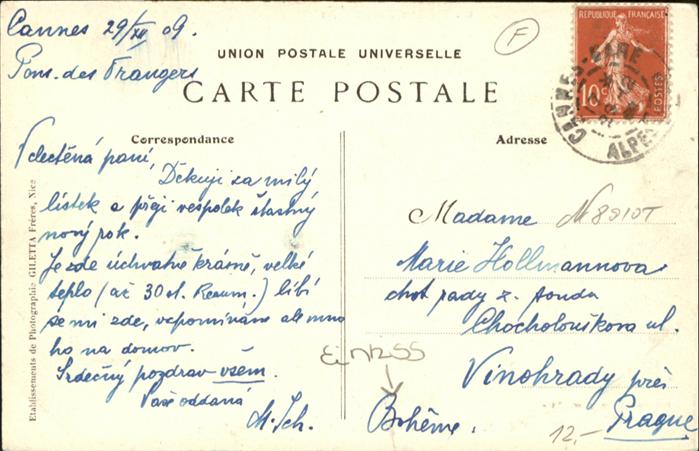 Cannes 29/XII 09.
Pons. des Etrangers
F
UNION POSTALE UNIVERSELLE
CARTE POSTALE
REPUBLIQUE FRANÇAISE
10c
POSTES
CANNES-GARE
ALPES
Correspondance
Vdectěná paní,
Děkuji za milý
lístek a přeji vespolek šťastný
nový rok.
Je zde úchvatně krásně, velké
teplo (až 30 st. Reaum.) líbí
se mi zde, vzpomínáme ale mno
ho na domov.
Srdečný pozdrav všem
Vaše oddaná
M. Sch.
Adresse
Madame
Marie Hollmannova
choť rady z. fondu
Chocholouškova ul.
Vinohrady près
Prague
Bohême.
12,-
Etablissements de Photographie GILETTA Frères, Nice